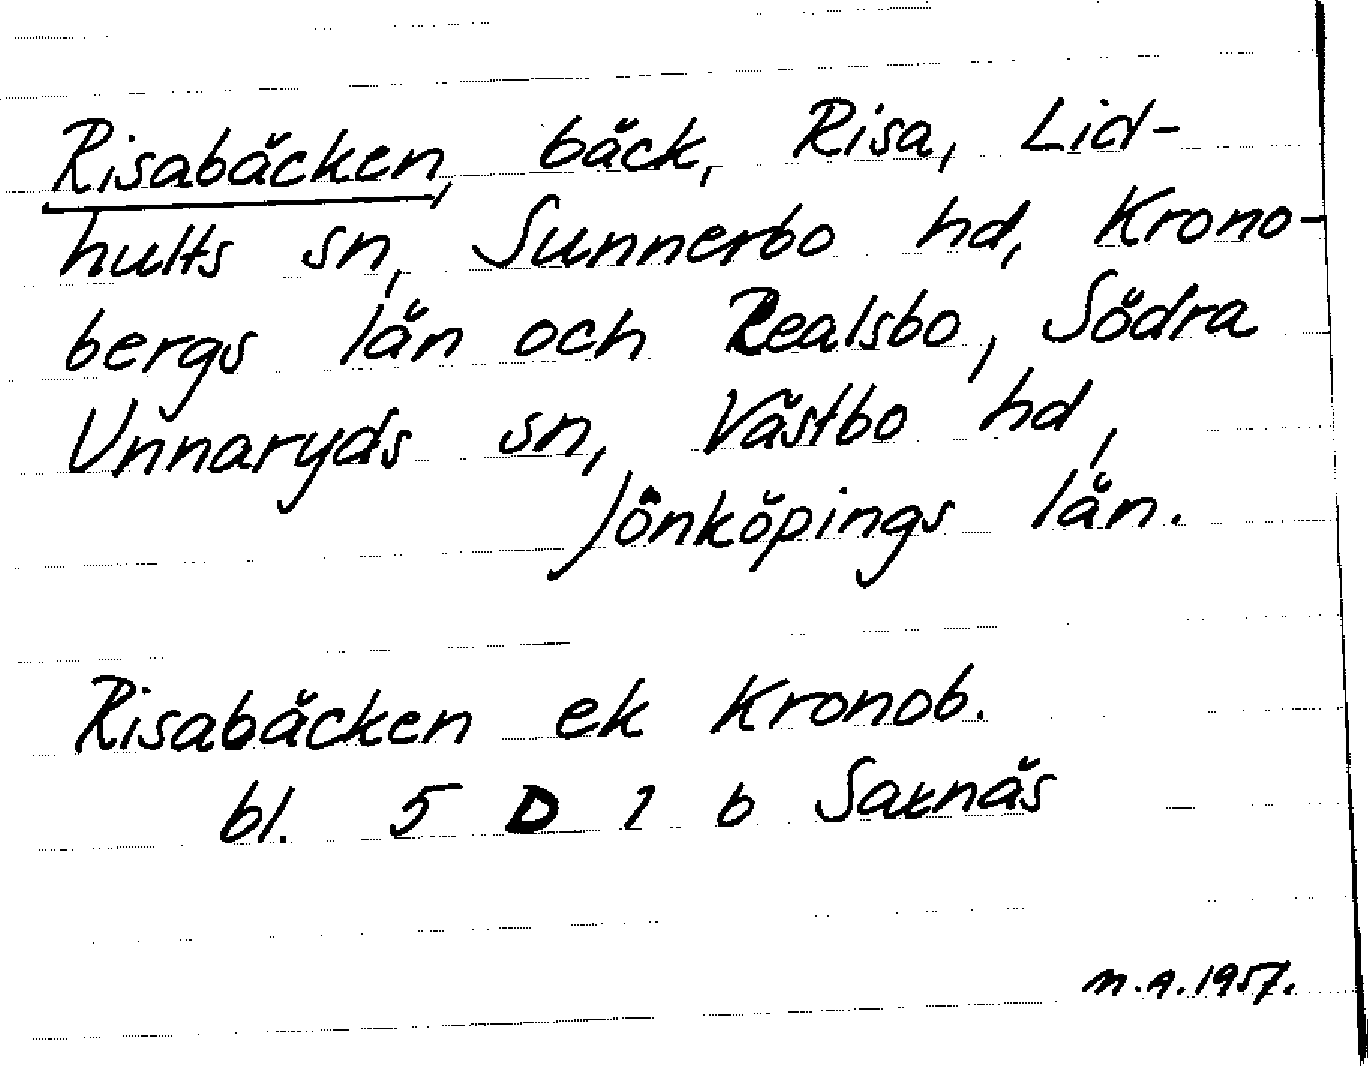 Risabäcken, bäck, Risa, Lid-
hults sn, Sunnerbo hd, Krono-
bergs län och Realsbo, Södra
Unnaryds sn, Västbo hd,
Jönköpings län.
Risabäcken ek Kronob.
bl. 5 D 2 b Saxnäs
M.A. 1957.